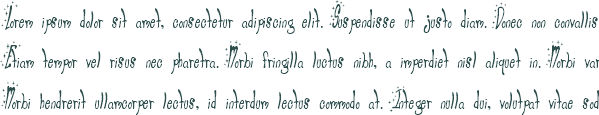 Lorem ipsum dolor sit amet, consectetur adipiscing elit. Suspendisse ut justo diam. Donec non convallis
Etiam tempor vel risus nec pharetra. Morbi fringilla luctus nibh, a imperdiet nisl aliquet in. Morbi var
Morbi hendrerit ullamcorper lectus, id interdum lectus commodo at. Integer nulla dui, volutpat vitae sod